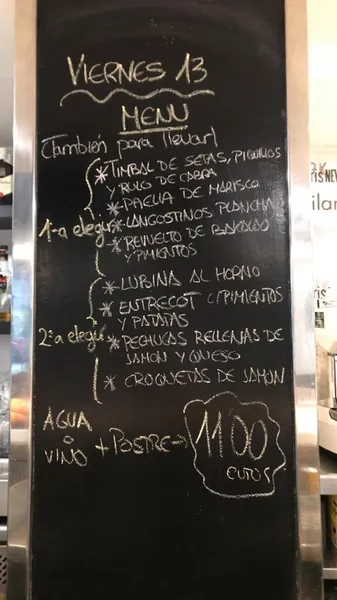 VIERNES 13
MENU
(También para llevar)
* TIMBAL DE SETAS, PIQUILLOS
Y RULO DE CABRA
* PAELLA DE MARISCO
1ª a elegir
* LANGOSTINOS PLANCHA
* REVUELTO DE BAKALAO
Y PIMIENTOS
* LUBINA AL HORNO
* ENTRECOT C/PIMIENTOS
Y PATATAS
2ª a elegir
* PECHUGAS RELLENAS DE
JAMON Y QUESO
* CROQUETAS DE JAMON
AGUA
O
VINO
+ POSTRE →
11'00
EUROS